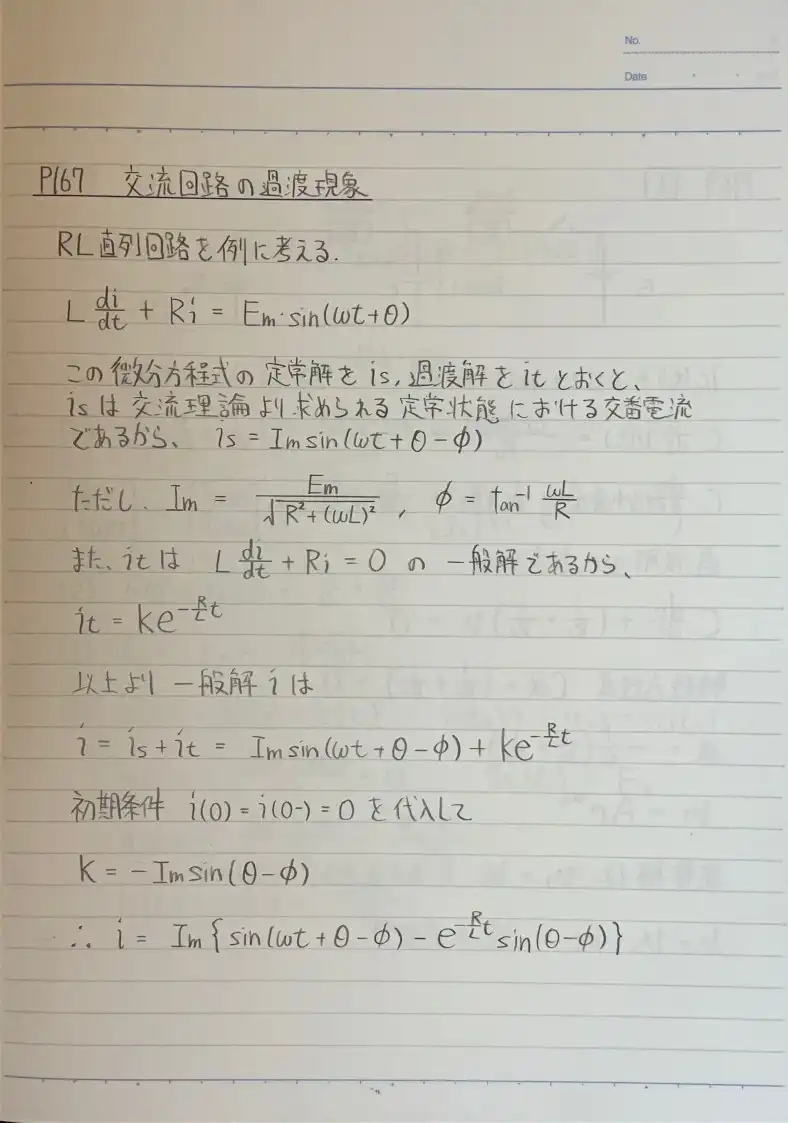 No.
Date
P167 交流回路の過渡現象
RL直列回路を例に考える.
L di/dt + Ri = Em·sin(ωt+θ)
この微分方程式の定常解をis, 過渡解をitとおくと、
isは交流理論より求められる定常状態における交番電流
であるから、 is = Im sin(ωt+θ-φ)
ただし、Im = Em/√(R²+(ωL)²) , φ = tan⁻¹ ωL/R
また、itは L di/dt + Ri = 0 の 一般解であるから、
it = ke^(-R/L t)
以上より 一般解 i は
i = is + it = Im sin(ωt+θ-φ) + ke^(-R/L t)
初期条件 i(0) = i(0-) = 0 を代入して
k = -Im sin(θ-φ)
∴ i = Im{sin(ωt+θ-φ) - e^(-R/L t) sin(θ-φ)}